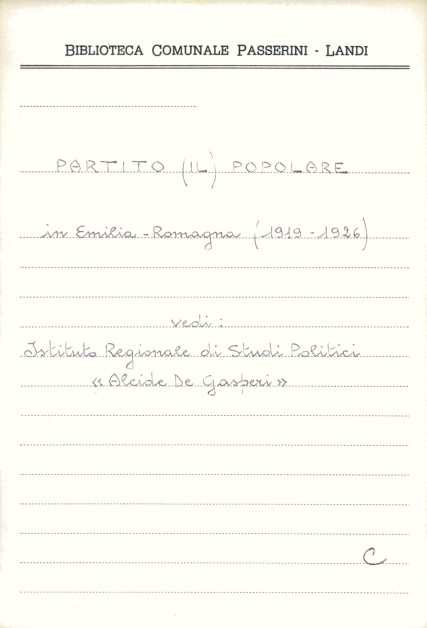 BIBLIOTECA COMUNALE PASSERINI - LANDI
PARTITO (IL) POPOLARE
in Emilia-Romagna (1919-1926)
vedi:
Istituto Regionale di Studi Politici
«Alcide De Gasperi»
C